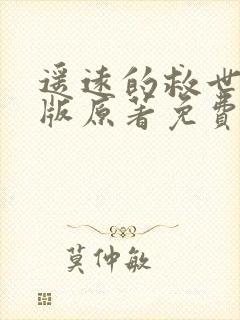 遥远的救世
版原著免费
莫仲敏